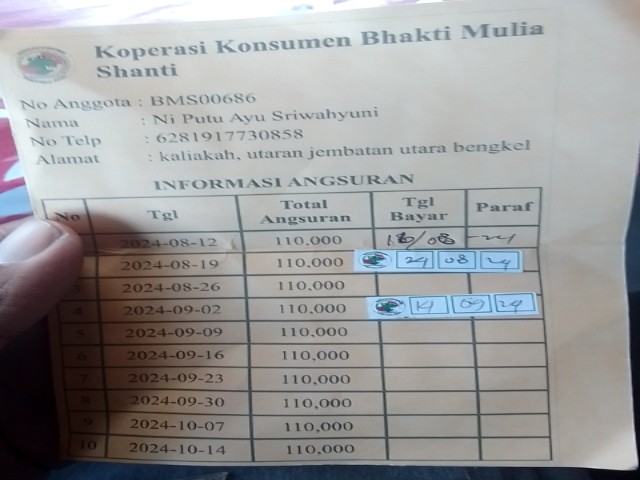 Koperasi Konsumen Bhakti Mulia
Shanti
No Anggota : BMS00686
Nama : Ni Putu Ayu Sriwahyuni
No Telp : 6281917730858
Alamat : kaliakah, utaran jembatan utara bengkel
INFORMASI ANGSURAN
No Tgl Total Angsuran Tgl Bayar Paraf
2024-08-12 110,000 /08 24
2024-08-19 110,000 24 08 24
3 2024-08-26 110,000
4 2024-09-02 110,000 14 09 24
5 2024-09-09 110,000
6 2024-09-16 110,000
7 2024-09-23 110,000
8 2024-09-30 110,000
9 2024-10-07 110,000
10 2024-10-14 110,000